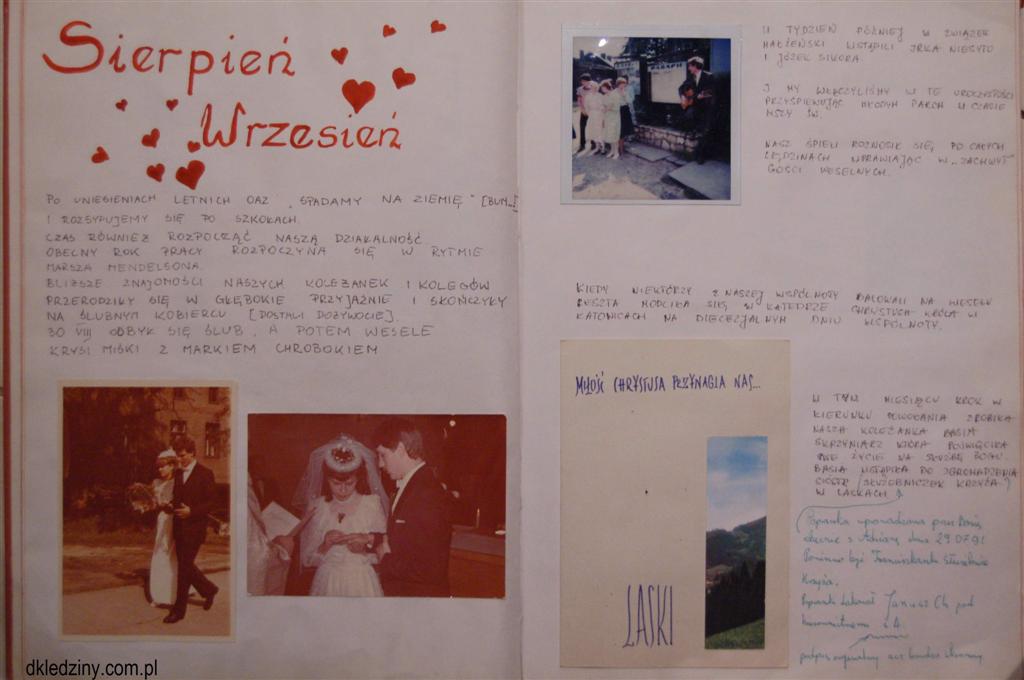 Sierpień
Wrzesień
PO UNIESIENIACH LETNICH OAZ „SPADAMY NA ZIEMIĘ" [BUM...]
I ROZSYPUJEMY SIĘ PO SZKOŁACH.
CZAS RÓWNIEŻ ROZPOCZĄĆ NASZĄ DZIAŁALNOŚĆ.
OBECNY ROK PRACY ROZPOCZYNA SIĘ W RYTMIE
MARSZA MENDELSONA.
BLIŻSZE ZNAJOMOŚCI NASZYCH KOLEŻANEK I KOLEGÓW
PRZERODZIŁY SIĘ W GŁĘBOKIE PRZYJAŹNIE I SKOŃCZYŁY
NA ŚLUBNYM KOBIERCU [DOSTALI DOŻYWOCIE].
30 VIII ODBYŁ SIĘ ŚLUB, A POTEM WESELE
KRYSI MIŚKI Z MARKIEM CHROBOKIEM
W TYDZIEŃ PÓŹNIEJ W ZWIĄZEK
MAŁŻEŃSKI WSTĄPILI IRKA NIESYTO
I JÓZEK SIKORA.
I MY WŁĄCZYLIŚMY W TE UROCZYSTOŚCI
PRZYŚPIEWUJĄC MŁODYM PAROM W CZASIE
MSZY ŚW.
NASZ ŚPIEW ROZNOSIŁ SIĘ PO CAŁYCH
LĘDZINACH WPRAWIAJĄC W „ZACHWYT"
GOŚCI WESELNYCH.
KIEDY NIEKTÓRZY Z NASZEJ WSPÓLNOTY BALOWALI NA WESELU
RESZTA MODLIŁA SIĘ W KATEDRZE CHRYSTUSA KRÓLA W
KATOWICACH NA DIECEZJALNYM DNIU WSPÓLNOTY.
MIŁOŚĆ CHRYSTUSA PRZYNAGLA NAS...
LASKI
W TYM MIESIĄCU KROK W
KIERUNKU POWOŁANIA ZROBIŁA
NASZA KOLEŻANKA BASIA
SKRZYNIARZ KTÓRA POŚWIĘCIŁA
SWE ŻYCIE NA SŁUŻBĘ BOGU.
BASIA WSTĄPIŁA DO ZGROMADZENIA
SIÓSTR (SŁUŻEBNICZEK KRZYŻA)
W LASKACH
Poprawka wprowadzona przez Basię
obecnie s. dnia 29.07.91
Powinno być Franciszkanek Służebnic
Krzyża.
Janusz Ch. pod
dkledziny.com.pl